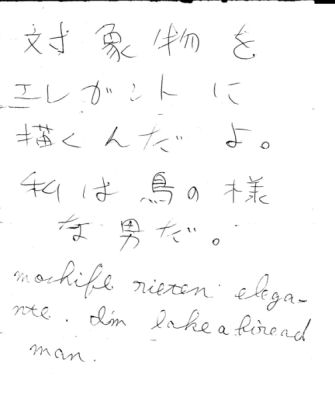 対象物を
エレガントに
描くんだよ。
私は鳥の様
な男だ。
mochife rieten elega-
nte. I'm lake a biread
man.